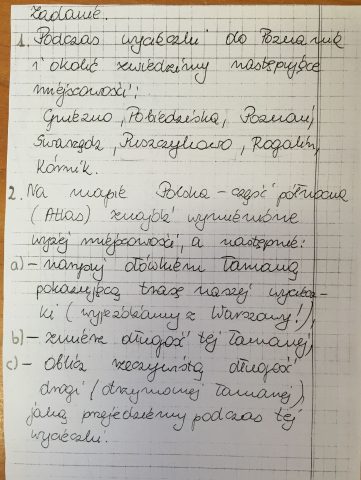 Zadanie.
1. Podczas wycieczki do Poznania
i okolic zwiedzimy następujące
miejscowości:
Gniezno, Pobiedziska, Poznań,
Swarzędz, Puszczykowo, Rogalin,
Kórnik.
2. Na mapie Polska - część północna
(Atlas) znajdź wymienione
wyżej miejscowości, a następnie:
a) - narysuj ołówkiem łamaną
pokazującą trasę naszej wyciecz-
ki (wyjeżdżamy z Warszawy!),
b) - zmierz długość tej łamanej,
c) - oblicz rzeczywistą długość
drogi (otrzymanej łamanej),
jaką przejedziemy podczas tej
wycieczki.